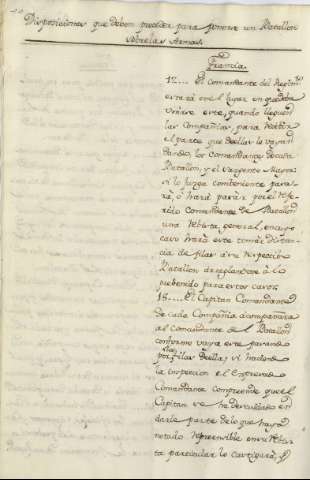 Disposiciones que deben preceder para ponerse un Batallon
sobre las Armas.
Francia.
17.... El comandante del Regim.to
estará en el lugar en que deba
unirse este, quando lleguen
las Compañias, para recibir
el parte que de ellas le vayan
dando los Comandantes de cada
Batallon, y el Sargento Mayor;
si lo juzga combeniente pasa-
rá, ò hará pasar por el refe-
rido Comandante de Batallon
una rebista general, en cuyo
caso hará este tomar distan-
cia de filas à su respectivo
Batallon arreglandose à lo
prebenido para estos casos.
18.... El Capitan Comandante
de cada Compañia acompañara
al Comandante del Batallon
conforme vaya este pasando
por las filas de ellas, si haciendo
la inspeccion el Expresado
Comandante comprende que el
Capitan se ha descuidado en
darle parte de lo que haya
notado reprensible en su rebis-
ta particular lo castigará, y